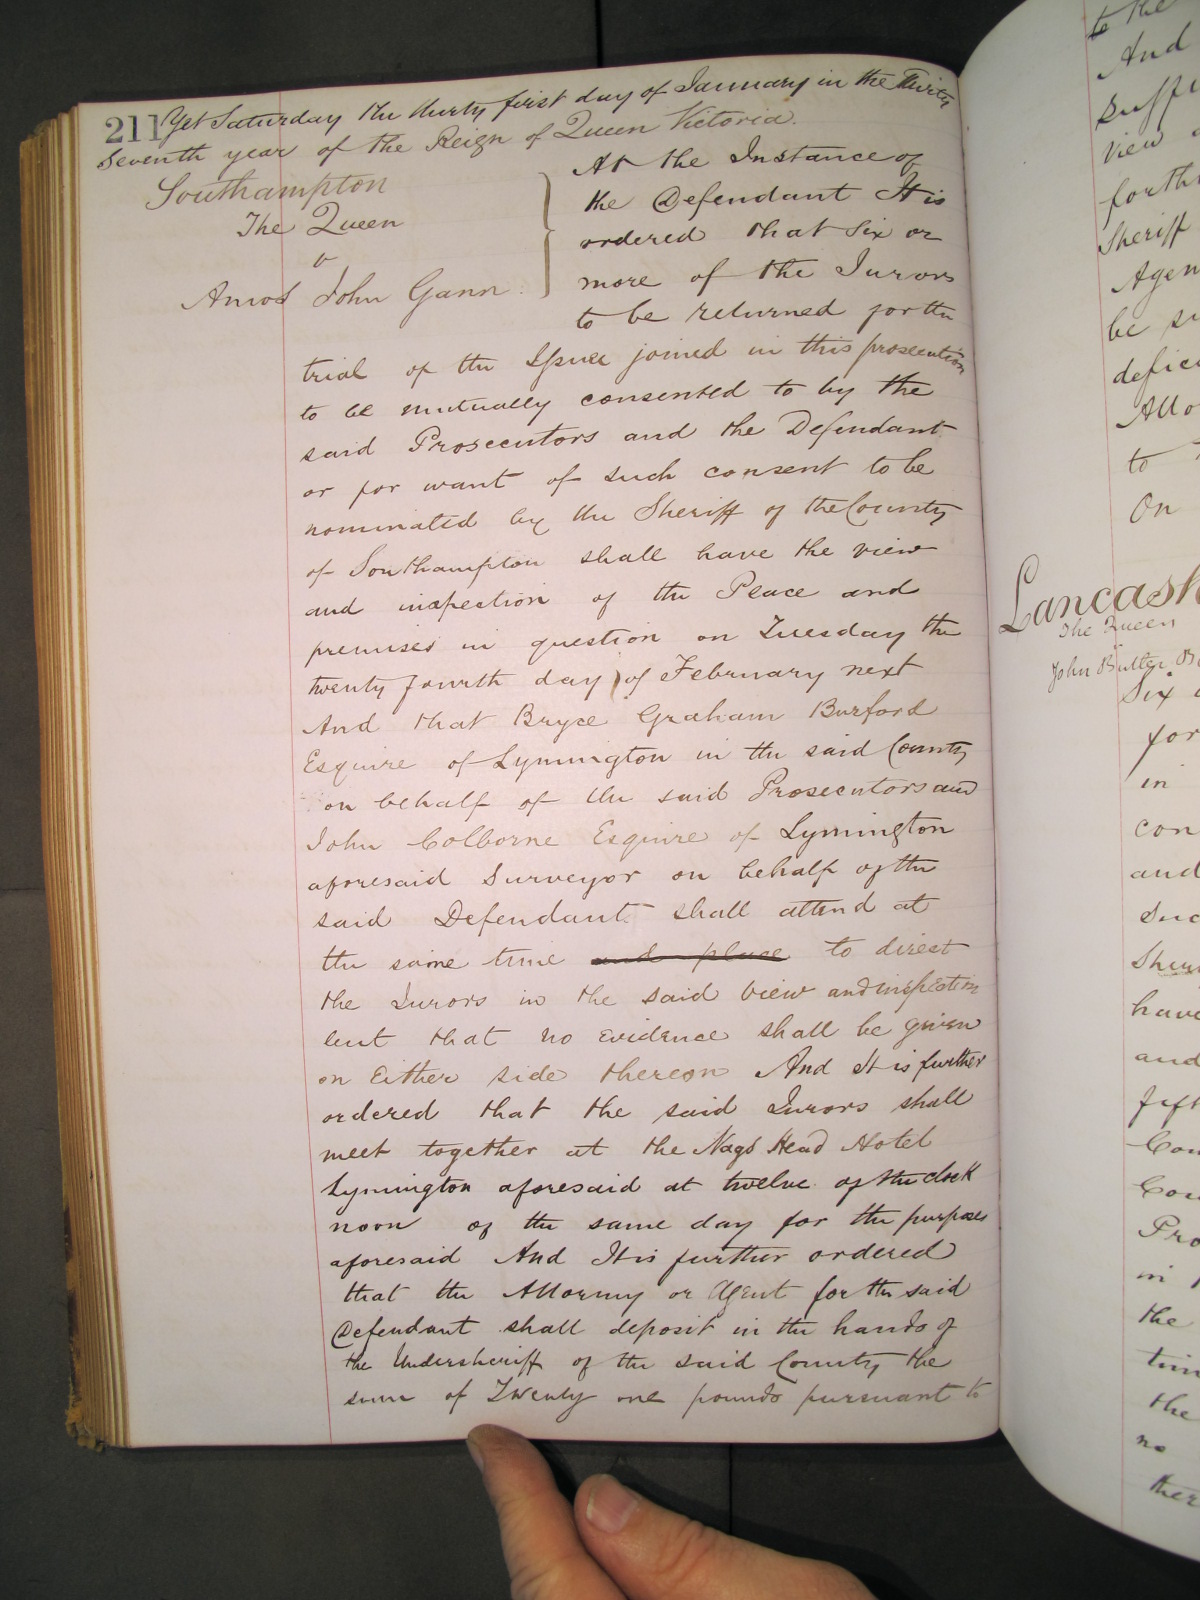 211 Yet Saturday the thirty first day of January in the Thirty
Seventh year of the Reign of Queen Victoria.
Southampton
The Queen
v
Amos John Gann
At the Instance of
the Defendant It is
ordered that Six or
more of the Jurors
to be returned for the
trial of the Issue joined in this prosecution
to be mutually consented to by the
said Prosecutors and the Defendant
or for want of such consent to be
nominated by the Sheriff of the County
of Southampton shall have the view
and inspection of the Place and
premises in question on Tuesday the
twenty fourth day of February next
And that Bryce Graham Burford
Esquire of Lymington in the said County
on behalf of the said Prosecutors and
John Colborne Esquire of Lymington
aforesaid Surveyor on behalf of the
said Defendant shall attend at
the same time and place to direct
the Jurors in the said view and inspection
but that no evidence shall be given
on Either side thereon And It is further
ordered that the said Jurors shall
meet together at the Nags Head Hotel
Lymington aforesaid at twelve of the clock
noon of the same day for the purposes
aforesaid And It is further ordered
that the Attorney or Agent for the said
Defendant shall deposit in the hands of
the Undersheriff of the said County the
sum of Twenty one pounds pursuant to
to the
And
view
Sheriff
be
to
On
The Queen
John
Six
for
in
and
have
and
in
the
the
no